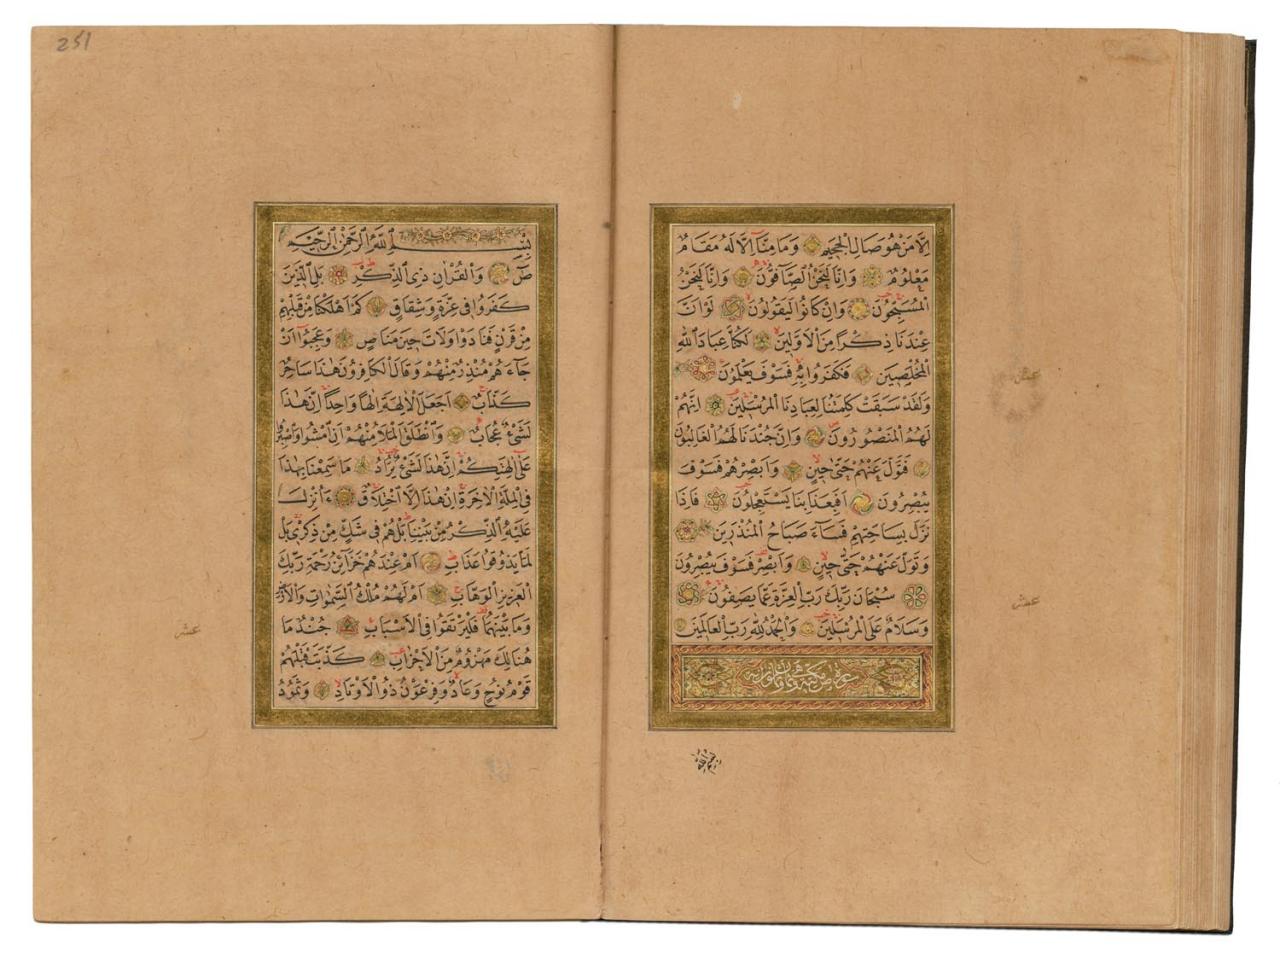 اِلَّا مَنْ هُوَ صَالِ الْجَحِيمِ وَمَا مِنَّٓا اِلَّا لَهُ مَقَامٌ
مَعْلُومٌ وَاِنَّا لَنَحْنُ الصَّٓافُّونَ وَاِنَّا لَنَحْنُ
الْمُسَبِّحُونَ وَاِنْ كَانُوا لَيَقُولُونَ لَوْ اَنَّ
عِنْدَنَا ذِكْرًا مِنَ الْاَوَّلِينَ لَكُنَّا عِبَادَ اللّٰهِ
الْمُخْلَصِينَ فَكَفَرُوا بِهِ فَسَوْفَ يَعْلَمُونَ
وَلَقَدْ سَبَقَتْ كَلِمَتُنَا لِعِبَادِنَا الْمُرْسَلِينَ اِنَّهُمْ
لَهُمُ الْمَنْصُورُونَ وَاِنَّ جُنْدَنَا لَهُمُ الْغَالِبُونَ
فَتَوَلَّ عَنْهُمْ حَتّٰى حِينٍ وَاَبْصِرْهُمْ فَسَوْفَ
يُبْصِرُونَ اَفَبِعَذَابِنَا يَسْتَعْجِلُونَ فَاِذَا
نَزَلَ بِسَاحَتِهِمْ فَسَٓاءَ صَبَاحُ الْمُنْذَرِينَ
وَتَوَلَّ عَنْهُمْ حَتّٰى حِينٍ وَاَبْصِرْ فَسَوْفَ يُبْصِرُونَ
سُبْحَانَ رَبِّكَ رَبِّ الْعِزَّةِ عَمَّا يَصِفُونَ
وَسَلَامٌ عَلَى الْمُرْسَلِينَ وَالْحَمْدُ لِلّٰهِ رَبِّ الْعَالَمِينَ
عشر
عشر
بسم الله
251
بِسْمِ اللّٰهِ الرَّحْمٰنِ الرَّحِيمِ
صٓ وَالْقُرْاٰنِ ذِي الذِّكْرِ بَلِ الَّذِينَ
كَفَرُوا فِي عِزَّةٍ وَشِقَاقٍ كَمْ اَهْلَكْنَا مِنْ قَبْلِهِمْ
مِنْ قَرْنٍ فَنَادَوْا وَلَاتَ حِينَ مَنَاصٍ وَعَجِبُٓوا اَنْ
جَٓاءَهُمْ مُنْذِرٌ مِنْهُمْ وَقَالَ الْكَافِرُونَ هٰذَا سَاحِرٌ
كَذَّابٌ اَجَعَلَ الْاٰلِهَةَ اِلٰهًا وَاحِدًا اِنَّ هٰذَا
لَشَيْءٌ عُجَابٌ وَانْطَلَقَ الْمَلَأُ مِنْهُمْ اَنِ امْشُوا وَاصْبِرُوا
عَلٰٓى اٰلِهَتِكُمْ اِنَّ هٰذَا لَشَيْءٌ يُرَادُ مَا سَمِعْنَا بِهٰذَا
فِي الْمِلَّةِ الْاٰخِرَةِ اِنْ هٰذَٓا اِلَّا اخْتِلَاقٌ ءَاُنْزِلَ
عَلَيْهِ الذِّكْرُ مِنْ بَيْنِنَا بَلْ هُمْ فِي شَكٍّ مِنْ ذِكْرِي بَلْ
لَمَّا يَذُوقُوا عَذَابِ اَمْ عِنْدَهُمْ خَزَٓائِنُ رَحْمَةِ رَبِّكَ
الْعَزِيزِ الْوَهَّابِ اَمْ لَهُمْ مُلْكُ السَّمٰوَاتِ وَالْاَرْضِ
وَمَا بَيْنَهُمَا فَلْيَرْتَقُوا فِي الْاَسْبَابِ جُنْدٌ مَا
هُنَالِكَ مَهْزُومٌ مِنَ الْاَحْزَابِ كَذَّبَتْ قَبْلَهُمْ
قَوْمُ نُوحٍ وَعَادٌ وَفِرْعَوْنُ ذُو الْاَوْتَادِ وَثَمُودُ
عشر